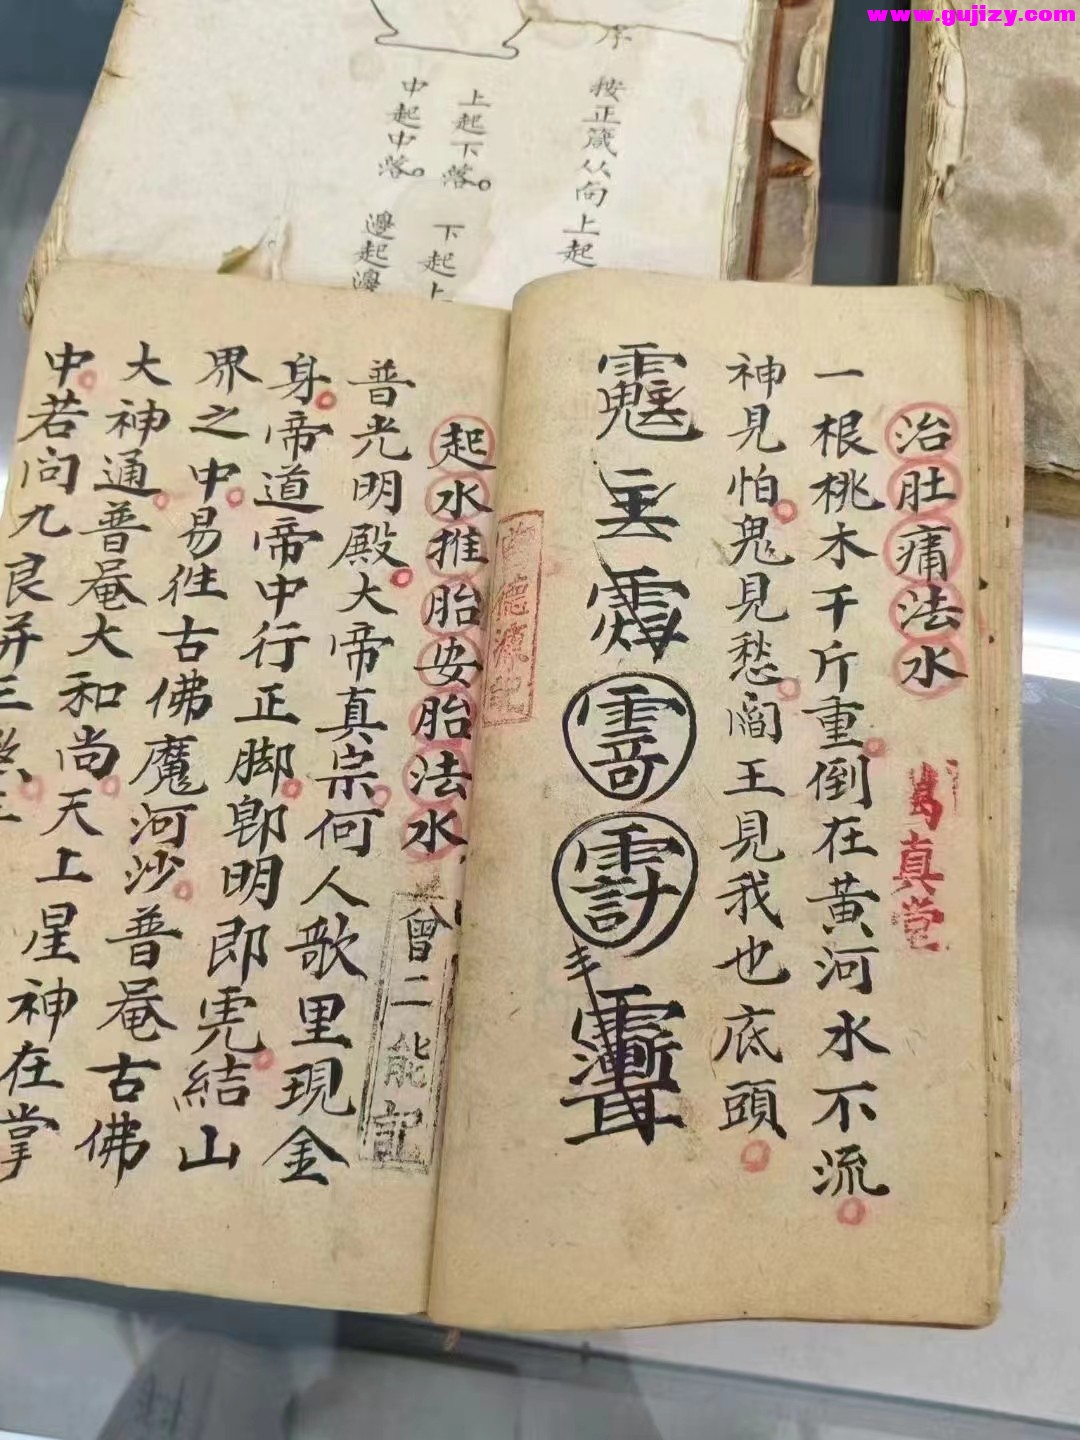 www.gujizy.com
序
按正箴从向上起
上起下落。下起上
中起中落。邊起邊
治肚痛法水
一根桃木千斤重倒在黃河水不流
神見怕鬼見愁閻王見我也底頭
真堂
德源記
起水推胎安胎法水
曾二能記
普光明殿大帝真宗何人歌里現金
身帝道帝中行正脚郎明即虎結山
界之中易往古佛魔河沙普菴古佛
大神通普菴大和尚天上星神在掌
中若问九良并三煞